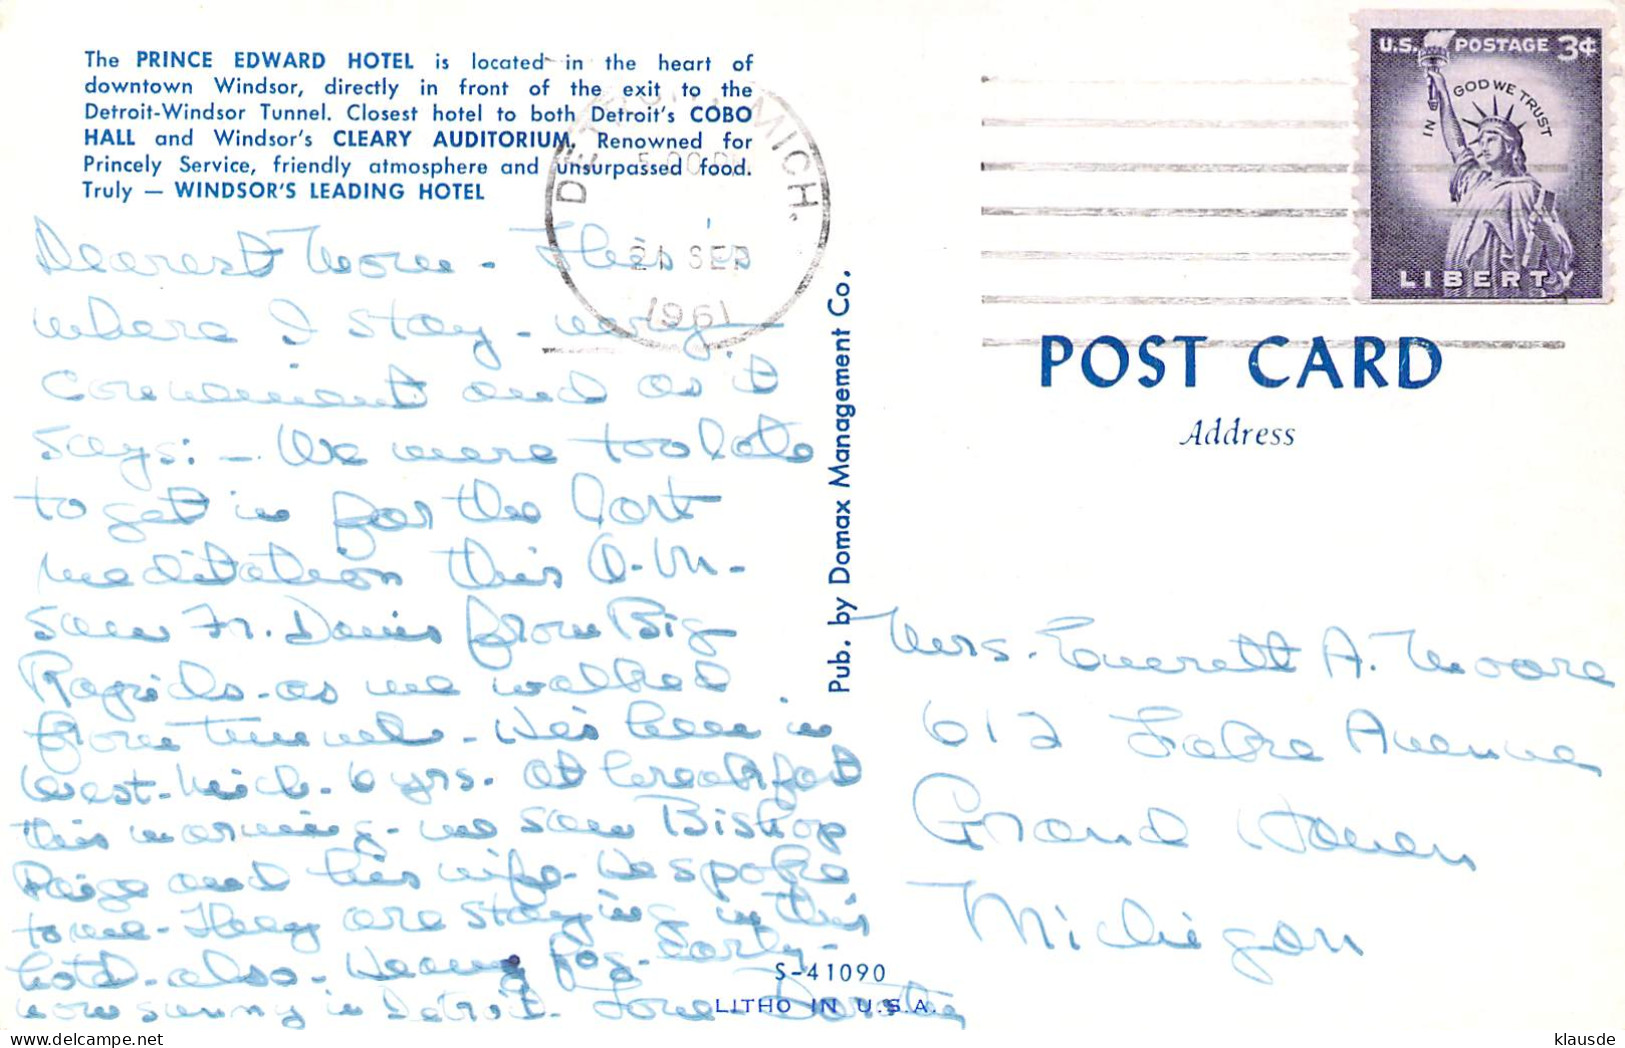 The PRINCE EDWARD HOTEL is located in the heart of
downtown Windsor, directly in front of the exit to the
Detroit-Windsor Tunnel. Closest hotel to both Detroit's COBO
HALL and Windsor's CLEARY AUDITORIUM. Renowned for
Princely Service, friendly atmosphere and unsurpassed food.
Truly — WINDSOR'S LEADING HOTEL
Dearest Mom - This is
where I stay - very
convenient and as it
says: - We were too late
to get in for the last
meditation this A.M. -
Saw Fr. Davis from Big
Rapids - as we walked
from tunnel - He's been in
West. Mich. 6 yrs. At breakfast
this morning - we saw Bishop
Paige and his wife - He spoke
to me - They are staying in this
hotel - also - Heavy fog - early -
now sunny in Detroit. Love Dorothy
Pub. by Domax Management Co.
S-41090
LITHO IN U.S.A.
DETROIT, MICH.
5 00 PM
21 SEP
1961
U.S. POSTAGE 3¢
IN GOD WE TRUST
LIBERTY
POST CARD
Address
Mrs. Everett A. Moore
612 Lake Avenue
Grand Haven
Michigan
klausde